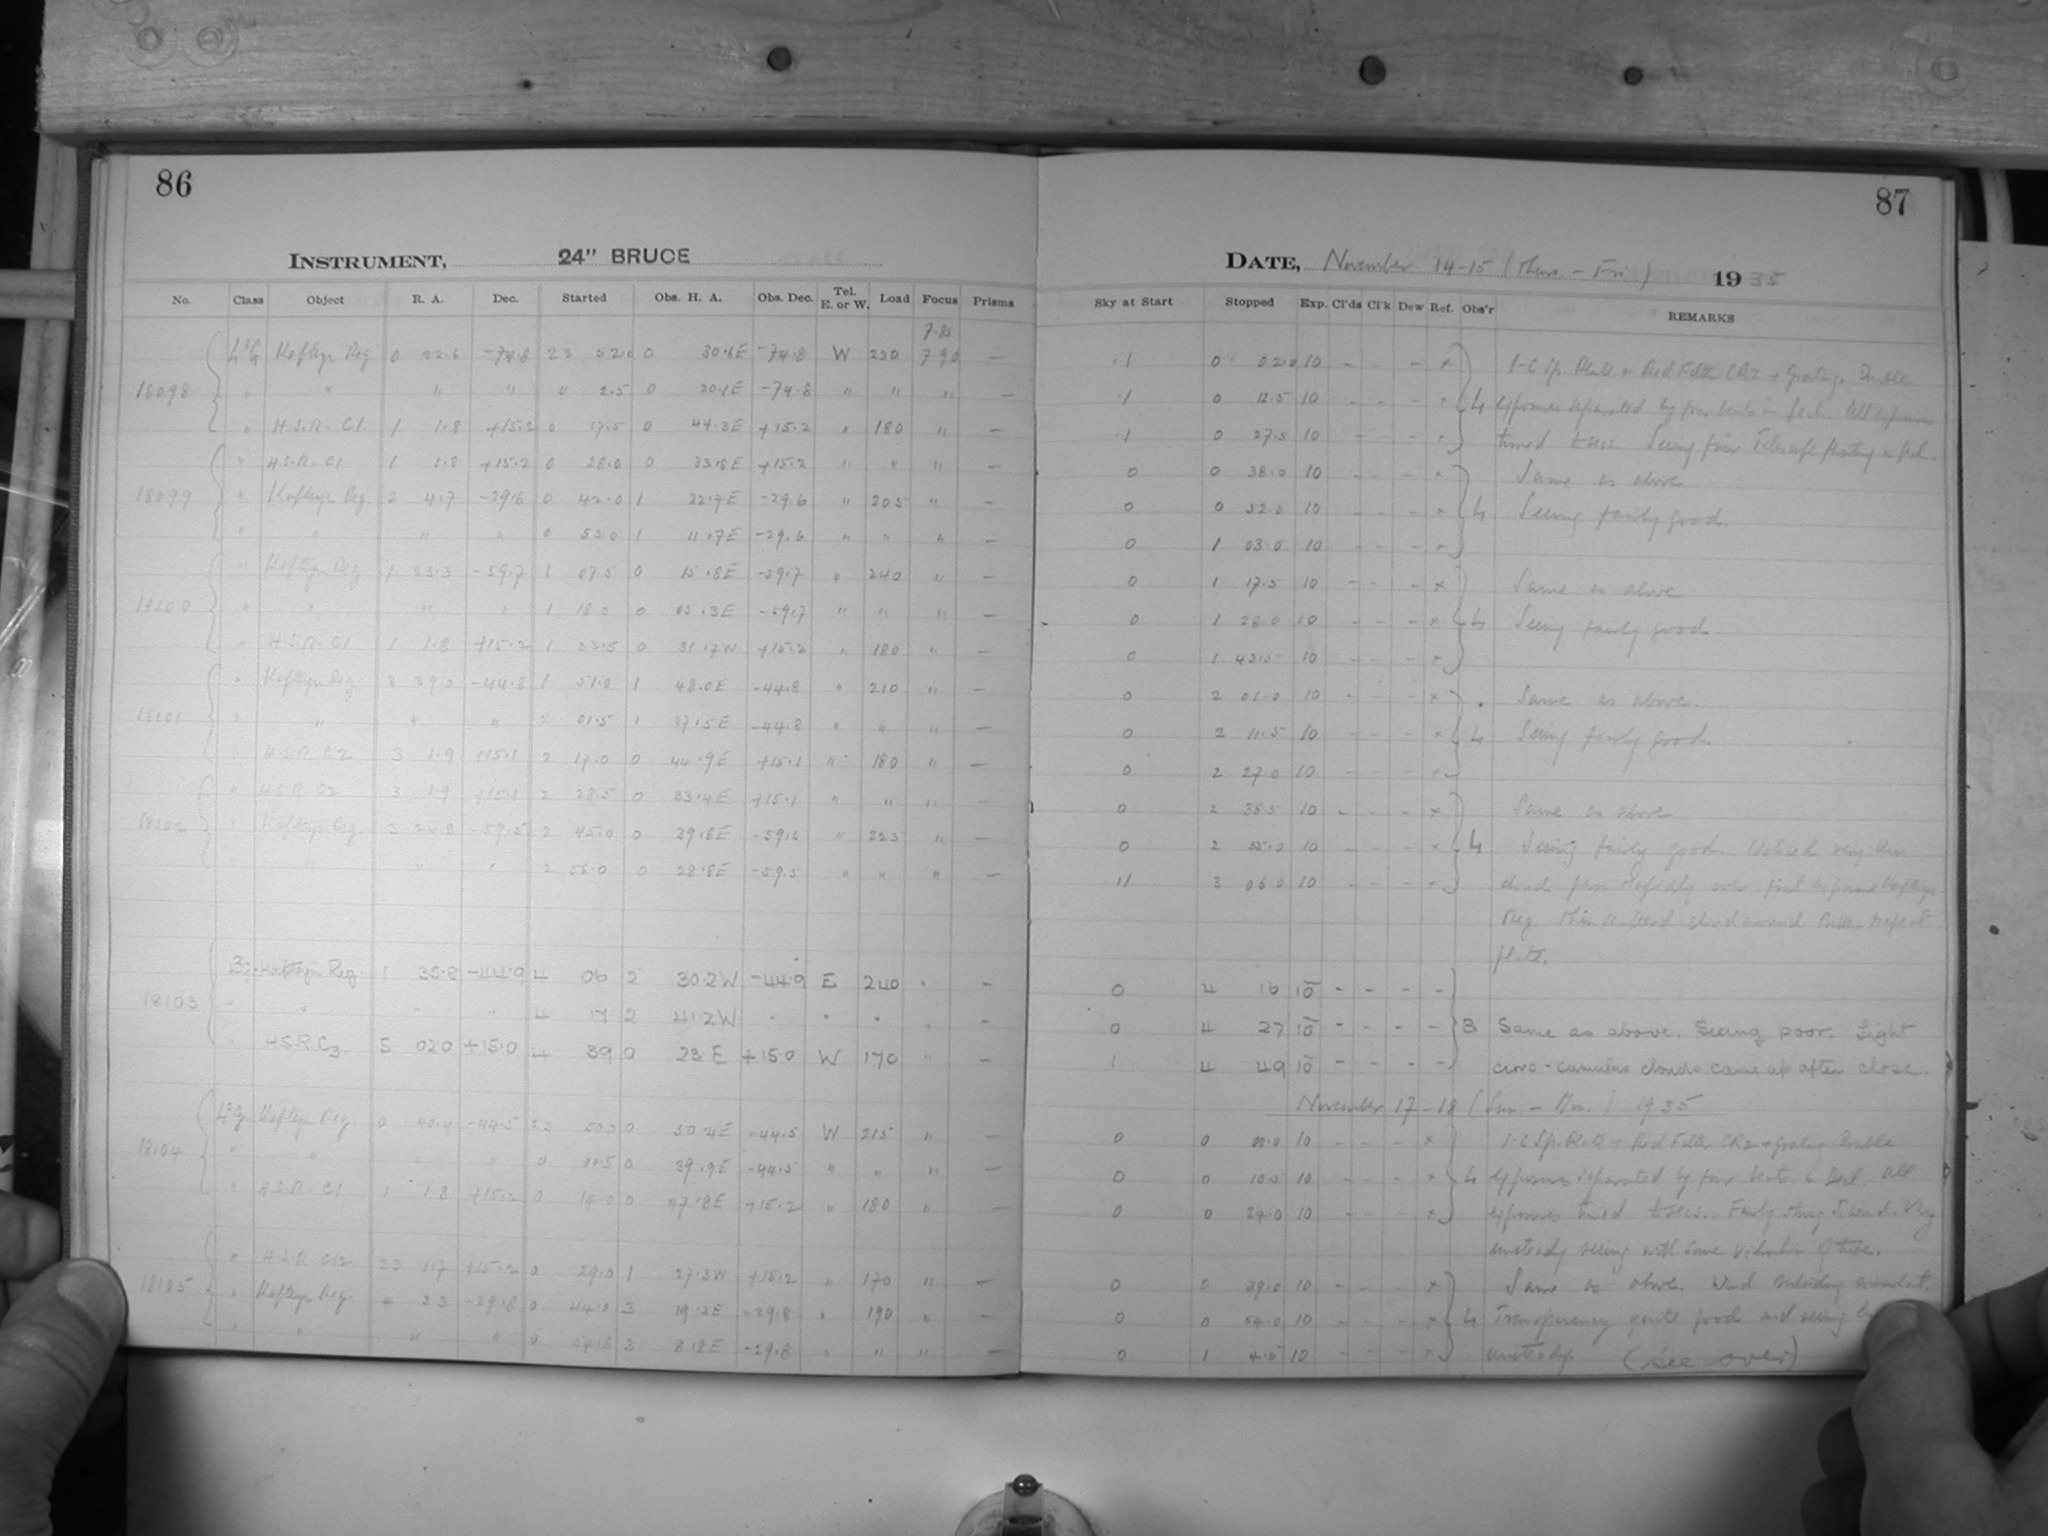 86
INSTRUMENT, 24" BRUCE
No. Class Object R. A. Dec. Started Obs. H. A. Obs. Dec. Tel. E. or W. Load Focus Prisms
7.85
Kapteyn Reg 0 22.6 -74.8 23 52.0 0 30.8E -74.8 W 230 7.90 —
18098 " " " " 0 2.5 0 20.1E -74.8 " " " —
" H.S.R. C1 1 1.8 +15.2 0 17.5 0 44.3E +15.2 " 180 " —
" H.S.R. C1 1 1.8 +15.2 0 28.0 0 33.8E +15.2 " " " —
18099 " Kapteyn Reg. 2 4.7 -29.6 0 42.0 1 22.7E -29.6 " 205 " —
" " " " 0 53.0 1 11.7E -29.6 " " " —
" Kapteyn Reg 1 23.3 -59.7 1 07.5 0 15.8E -59.7 " 240 " —
18100 " " " " 1 18.0 0 05.3E -59.7 " " " —
" H.S.R. C1 1 1.8 +15.2 1 33.5 0 31.7W +15.2 " 180 " —
" Kapteyn Reg. 3 39.0 -44.8 1 51.0 1 48.0E -44.8 " 210 " —
18101 " " " " 2 01.5 1 37.5E -44.8 " " " —
" H.S.R. C2 3 1.9 +15.1 2 17.0 0 44.9E +15.1 " 180 " —
" H.S.R. C2 3 1.9 +15.1 2 28.5 0 33.4E +15.1 " " " —
18102 " Kapteyn Reg. 3 24.8 -59.5 2 45.0 0 39.8E -59.5 " 225 " —
" " " " 2 56.0 0 28.8E -59.5 " " " —
Kapteyn Reg. 1 35.8 -44.9 4 06 2 30.2W -44.9 E 240 " —
18103 " " " " 4 17 2 41.2W " " " " —
" H.S.R. C3 5 02.0 +15.0 4 39 0 23.E +15.0 W 170 " —
Kapteyn Reg. 0 40.4 -44.5 23 50.0 0 50.4E -44.5 W 215 " —
18104 " " " " 0 00.5 0 39.9E -44.5 " " " —
" H.S.R. C1 1 1.8 +15.2 0 14.0 0 47.8E +15.2 " 180 " —
" H.S.R. C12 23 1.7 +15.2 0 29.0 1 27.3W +15.2 " 170 " —
18105 " Kapteyn Reg. 4 3.3 -29.8 0 44.0 3 19.3E -29.8 " 190 " —
" " " " 0 54.5 3 8.8E -29.8 " " " —
87
DATE, November 14-15 (Thurs. - Fri.) 1935
Sky at Start Stopped Exp. Cl'ds Cl'k Dew Ref. Obs'r REMARKS
.1 0 02.0 10 - - - x 1-C Sp. Plate + Red Filter CR2 + Grating. Double
.1 0 12.5 10 - - - x 4 exposures separated by four beats in Decl. All exposures
.1 0 27.5 10 - - - x timed Seeing fair. Telescope
0 0 38.0 10 - - - x Same as above
0 0 52.0 10 - - - x 4 Seeing fairly good.
0 1 03.0 10 - - - x
0 1 17.5 10 - - - x Same as above
0 1 28.0 10 - - - x 4 Seeing fairly good.
0 1 43.5 10 - - - x
0 2 01.0 10 - - - x Same as above.
0 2 11.5 10 - - - x 4 Seeing fairly good.
0 2 27.0 10 - - - x
0 2 38.5 10 - - - x Same as above
0 2 55.0 10 - - - x 4 Seeing fairly good. Noticed very thin
3 06.0 10 - - - x cloud pass rapidly over first exposure Kapteyn
Reg. Thin scattered cloud around. Better repeat
plate.
0 4 16 10 - - - -
0 4 27 10 - - - - B Same as above. Seeing poor. Light
1 4 49 10 - - - - cirro-cumulus clouds came up after close.
November 17-18 (Sun. - Mon.) 1935
0 0 00.0 10 - - - x 1-C Sp. Plate + Red Filter CR2 + Grating Double
0 0 10.5 10 - - - x 4 exposures separated by four beats in Decl. All
0 0 24.0 10 - - - x exposures timed Fairly strong S wind. Very
unsteady seeing with some vibration of tube.
0 0 39.0 10 - - - x Same as above. Wind subsiding somewhat.
0 0 54.0 10 - - - x 4 Transparency quite good and seeing
0 1 4.5 10 - - - x unsteady. (see over)